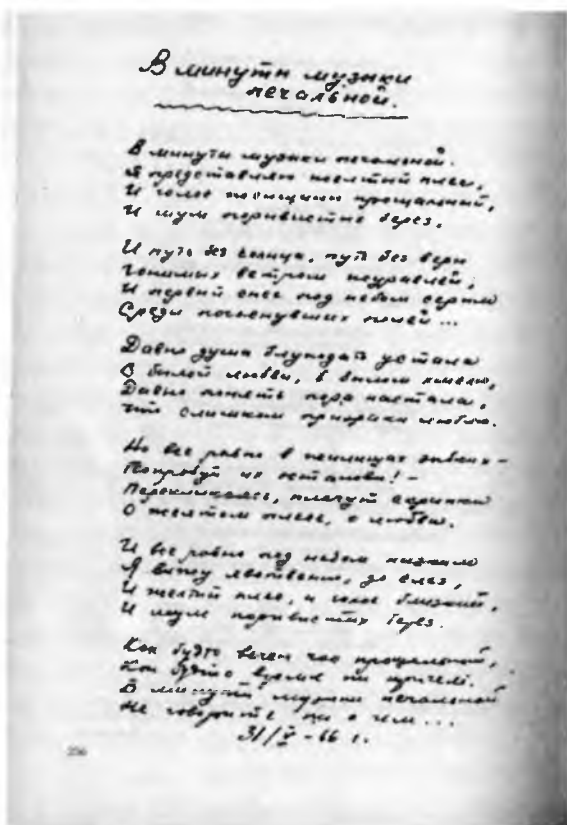 В минуты музыки
печальной.
В минуты музыки печальной.
Я представляю желтый плес,
И голос женщины прощальный,
И шум порывистых берез,
И путь без солнца, путь без веры
Гонимых ветром журавлей,
И первый снег под небом серым
Среди погаснувших полей ...
Давно душа блуждать устала
В былой любви, в былом хмелю,
Давно понять пора настала,
Что слишком призраки люблю.
Но все равно в жилищах зыбких -
Попробуй их останови! -
Перекликаясь, плачут скрипки
О желтом плесе, о любви.
И все равно под небом низким
Я вижу явственно, до слез,
И желтый плес, и голос близкий,
И шум порывистых берез.
Как будто вечен час прощальный,
Как будто время ни причем.
В минуты музыки печальной
Не говорите ни о чем ...
31/V - 66 г.